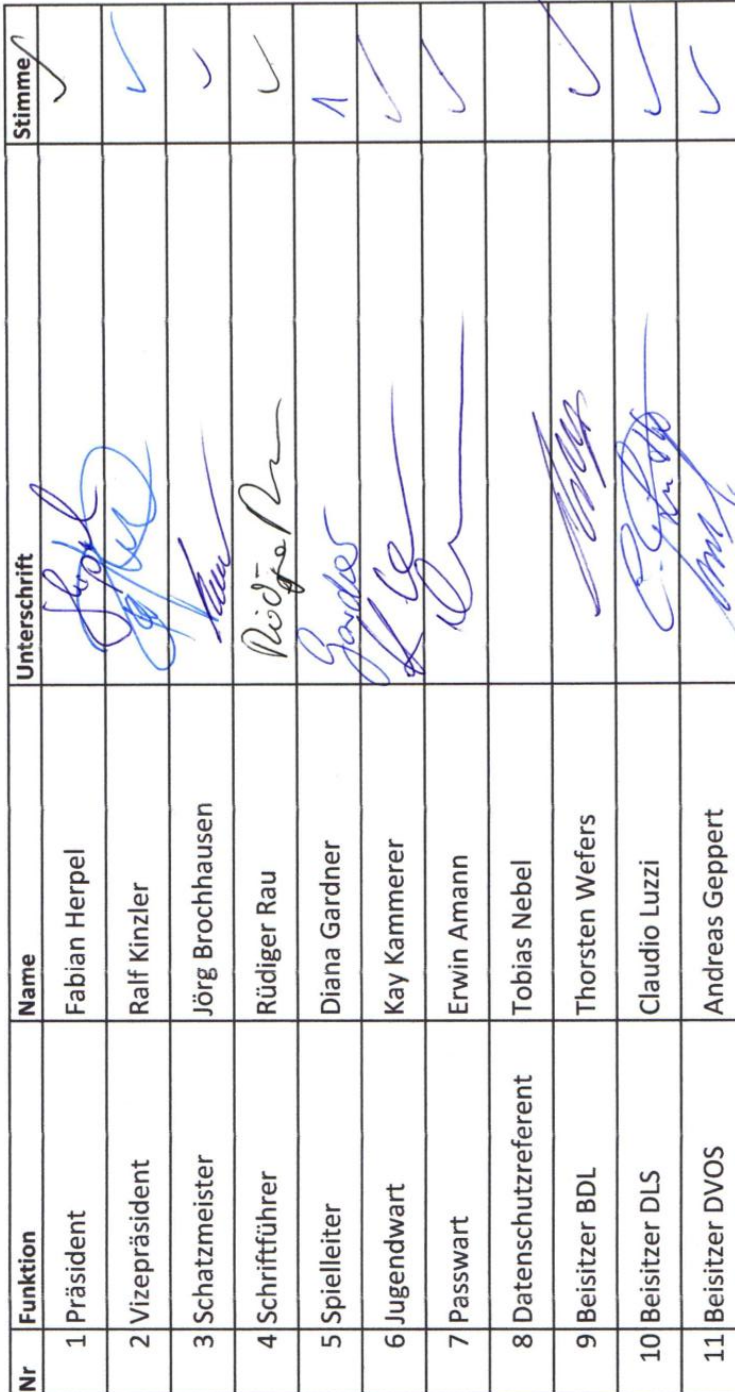 Nr Funktion Name Unterschrift Stimme
1 Präsident Fabian Herpel ✓
2 Vizepräsident Ralf Kinzler ✓
3 Schatzmeister Jörg Brochhausen ✓
4 Schriftführer Rüdiger Rau ✓
5 Spielleiter Diana Gardner Gardner 1
6 Jugendwart Kay Kammerer ✓
7 Passwart Erwin Amann ✓
8 Datenschutzreferent Tobias Nebel
9 Beisitzer BDL Thorsten Wefers ✓
10 Beisitzer DLS Claudio Luzzi ✓
11 Beisitzer DVOS Andreas Geppert ✓